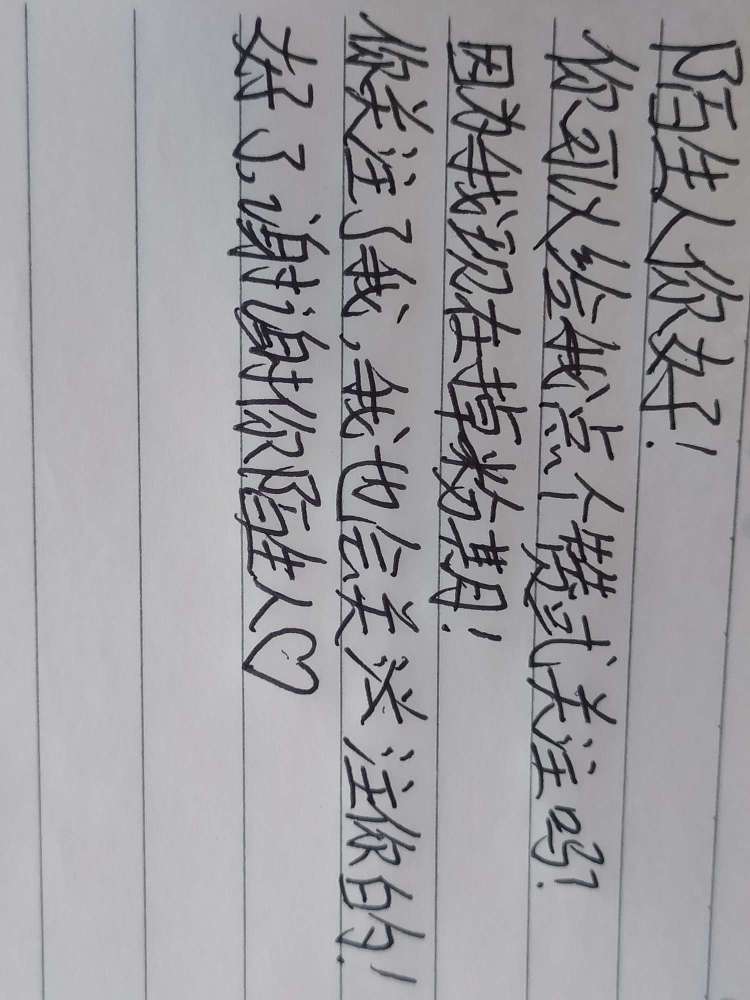 陌生人你好!
你可以给我点个赞或关注吗!
因为我现在掉粉期!
你关注了我,我也会关注你的!
好了,谢谢你陌生人♡